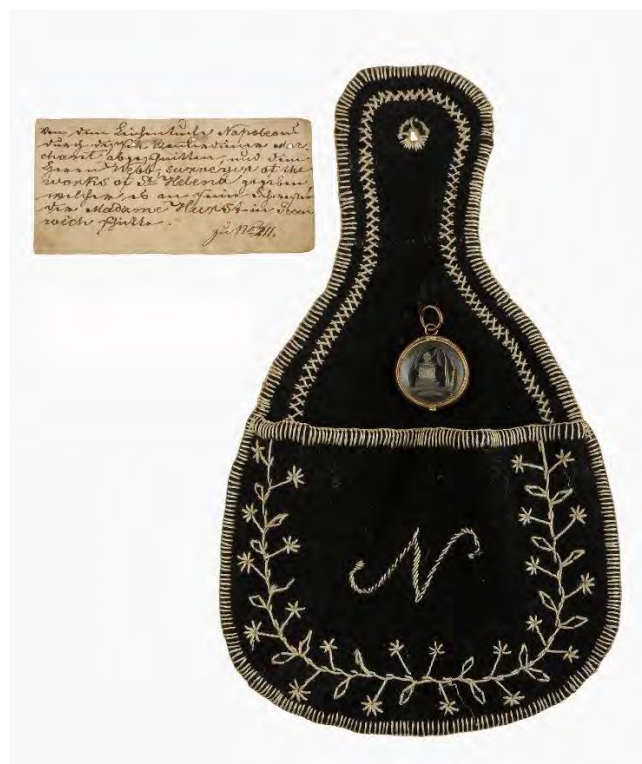 Von dem Leichentuche Napoleons
durch Mar-
chant, abgeschnitten, und dem
Herrn Webb, surveyor of the
works of St Helena, gegeben,
welcher es an seine Schwester
der Madame Hurst in
wich schickte.
zu No
N